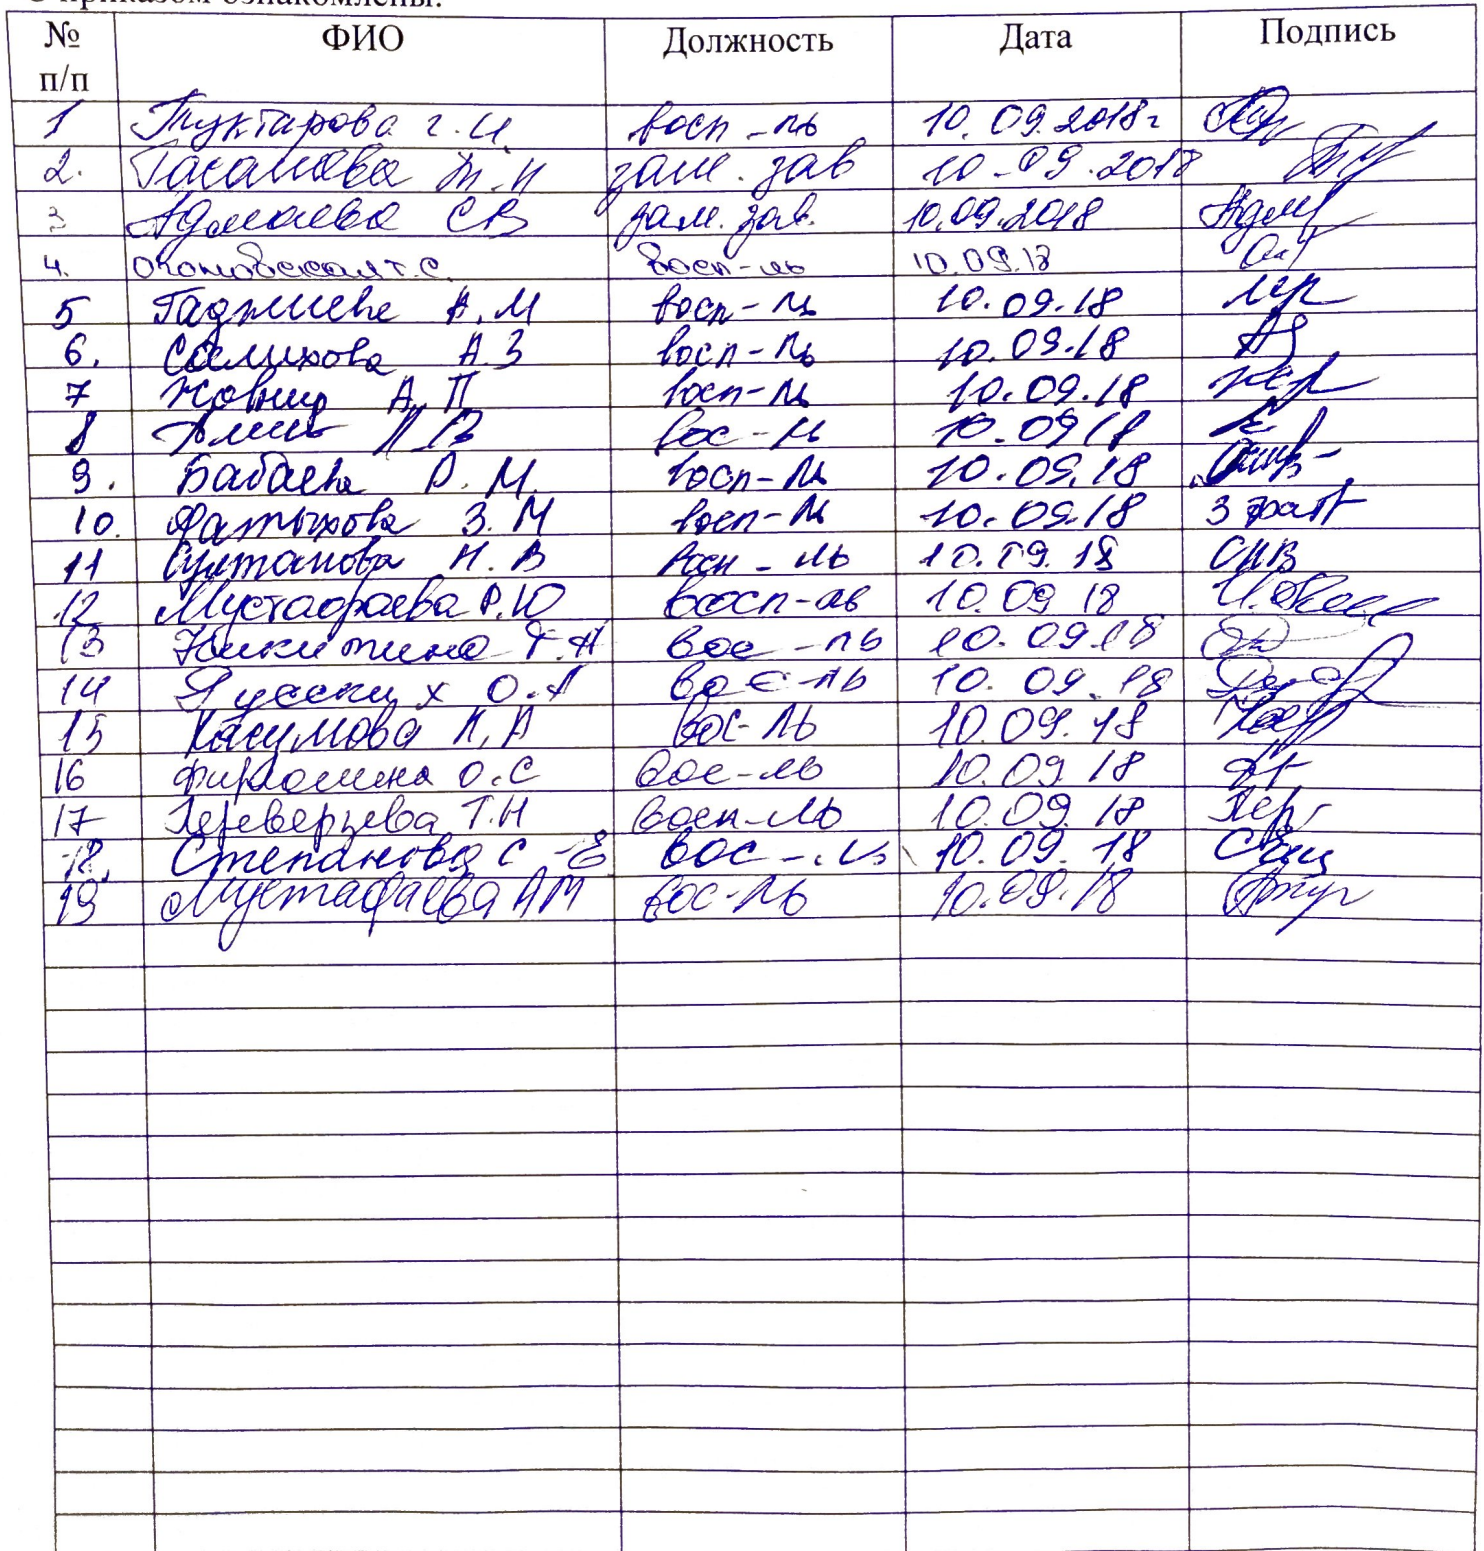 С приказом ознакомлены:
№ п/п ФИО Должность Дата Подпись
1 Туктарова г.И. восп-ль 10.09.2018г
2. Гасанова Т.Н зам. зав 10-09.2018
3 Адмаева СВ зам. зав. 10.09.2018
4. Окомовская т.С. восп-ль 10.09.18
5 Гаджиева А.М восп-ль 10.09.18
6. Салихова А.З восп-ль 10.09.18
7 Жовнир А.П восп-ль 10.09.18
8 вос-ль 10.09 18
9. Бабаева Р.М. восп-ль 10.09.18
10. Фатыхова З.М восп-ль 10.09.18 З фат
11 Султанова Н.В восп-ль 10.09.18 СНВ
12 Мустафаева Р.Ю восп-ль 10.09 18
13 Никитина Т.А вос-ль 10.09.18
14 Русских О.А вос-ль 10.09.18
15 Касумова К,А вос-ль 10.09.18
16 о.С вос-ль 10.09 18
17 Переверзева Т.Н восп-ль 10.09.18 Пер
18. Степанова С-Е вос-ль 10.09.18
19 Мустафаева АМ вос-ль 10.09.18